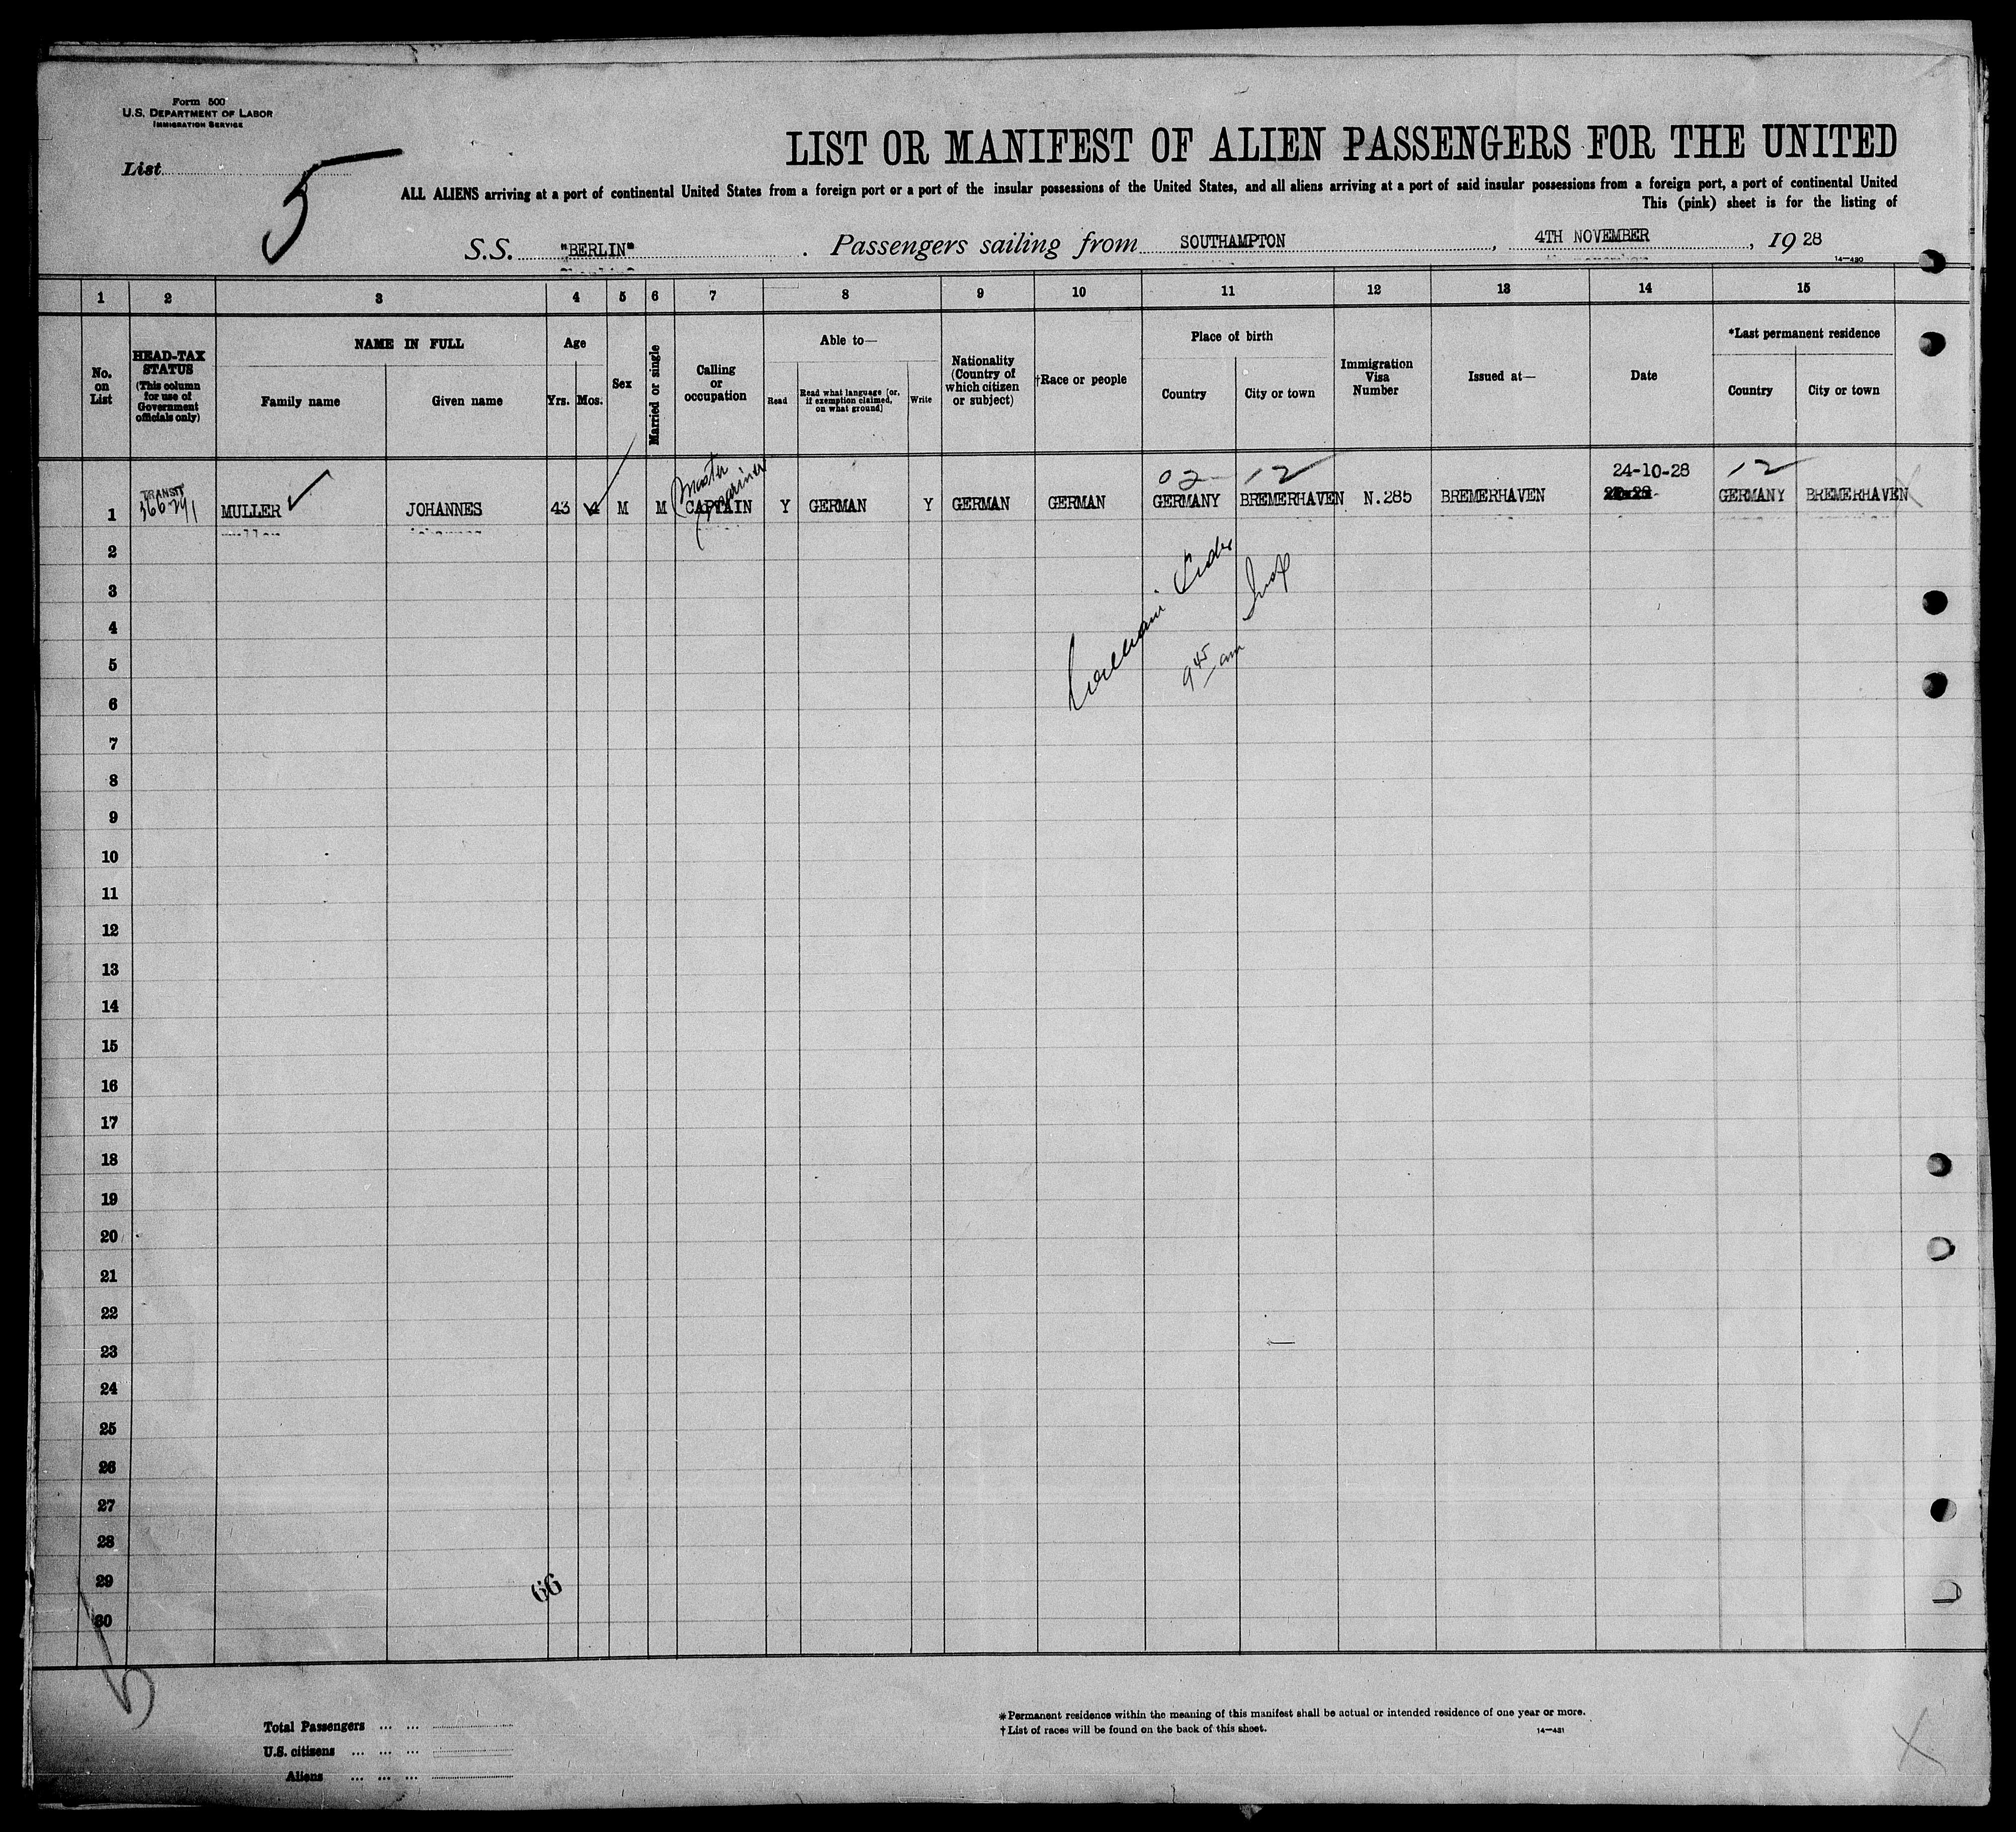 Form 500
U.S. DEPARTMENT OF LABOR
IMMIGRATION SERVICE
List 5
LIST OR MANIFEST OF ALIEN PASSENGERS FOR THE UNITED
ALL ALIENS arriving at a port of continental United States from a foreign port or a port of the insular possessions of the United States, and all aliens arriving at a port of said insular possessions from a foreign port, a port of continental United
This (pink) sheet is for the listing of
S.S. "BERLIN". Passengers sailing from SOUTHAMPTON, 4TH NOVEMBER, 1928
14—480
1 2 3 4 5 6 7 8 9 10 11 12 13 14 15
No. on List
HEAD-TAX STATUS (This column for use of Government officials only)
NAME IN FULL
Family name
Given name
Age
Yrs. Mos.
Sex
Married or single
Calling or occupation
Able to—
Read
Read what language [or, if exemption claimed, on what ground]
Write
Nationality (Country of which citizen or subject)
†Race or people
Place of birth
Country
City or town
Immigration Visa Number
Issued at—
Date
*Last permanent residence
Country
City or town
Master Mariner
02 12 24-10-28 12
TRANSIT
1 MULLER JOHANNES 43 M M CAPTAIN Y GERMAN Y GERMAN GERMAN GERMANY BREMERHAVEN N.285 BREMERHAVEN GERMANY BREMERHAVEN
2
3
4
5
9 45 am
6
7
8
9
10
11
12
13
14
15
16
17
18
19
20
21
22
23
24
25
26
27
28
29
66
30
5
*Permanent residence within the meaning of this manifest shall be actual or intended residence of one year or more.
†List of races will be found on the back of this sheet.
14—481
Total Passengers ... ...
U.S. citizens ... ... ...
Aliens ... ... ...